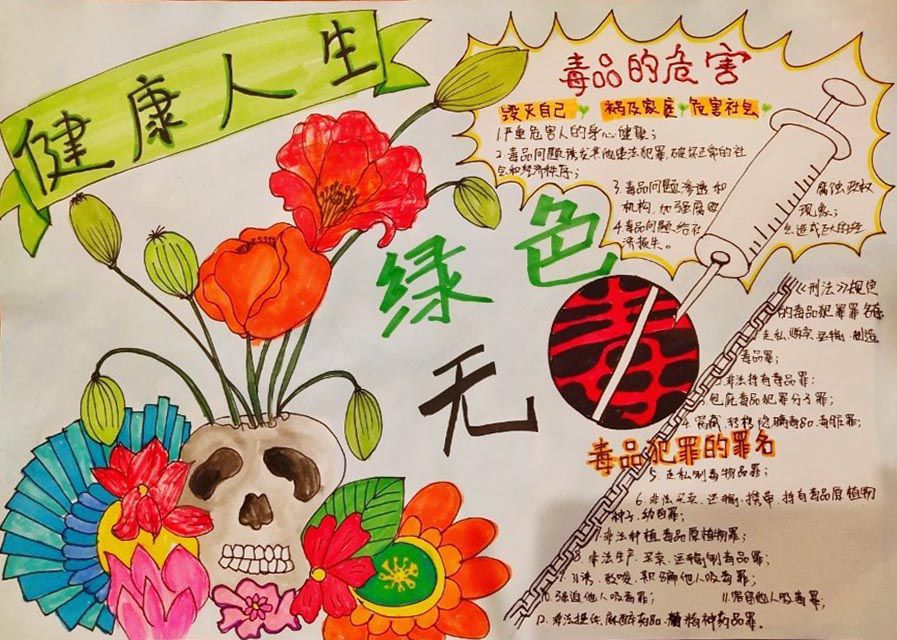 健康人生
绿色
无
毒
毒品的危害
毁灭自己 祸及家庭 危害社会
1.严重危害人的身心健康;
2.毒品问题诱发其他违法犯罪,破坏正常的社
会和经济秩序;
3.毒品问题渗透和 腐蚀政权
机构,加强腐败 现象;
4.毒品问题给社 会造成巨大的经
济损失。
《刑法》规定
的毒品犯罪罪名有
走私、贩卖、运输、制造
毒品罪;
2.非法持有毒品罪;
包庇毒品犯罪分子罪;
4.窝藏、转移、隐瞒毒品、毒赃罪;
毒品犯罪的罪名
5.走私制毒物品罪;
6.非法买卖、运输、携带、持有毒品原植物
种子、幼苗罪;
7.非法种植毒品原植物罪;
8.非法生产、买卖、运输制毒品罪;
9.引诱、教唆、欺骗他人吸毒罪;
10.强迫他人吸毒罪; 11.容留他人吸毒罪;
12.非法提供麻醉药品、精神药品罪。